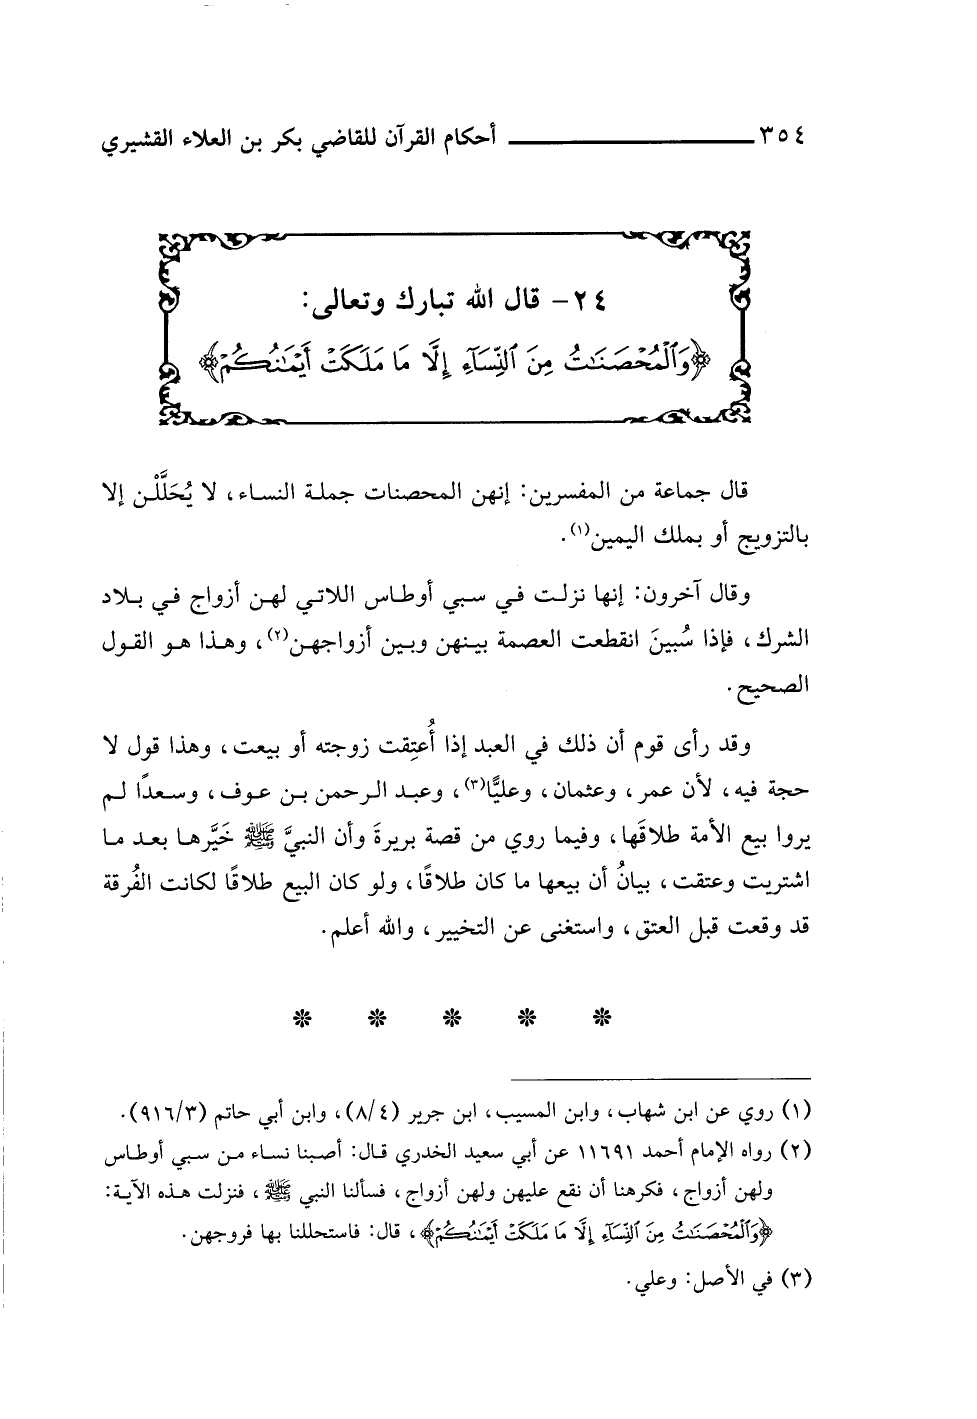 ٣٥٤ أحكام القرآن للقاضي بكر بن العلاء القشيري
٢٤- قال الله تبارك وتعالى:
﴿وَٱلْمُحْصَنَٰتُ مِنَ ٱلنِّسَآءِ إِلَّا مَا مَلَكَتْ أَيْمَٰنُكُمْ﴾
قال جماعة من المفسرين: إنهن المحصنات جملة النساء، لا يُحَلَّلْن إلا
بالتزويج أو بملك اليمين(١).
وقال آخرون: إنها نزلت في سبي أوطاس اللاتي لهن أزواج في بلاد
الشرك، فإذا سُبينَ انقطعت العصمة بينهن وبين أزواجهن(٢)، وهذا هو القول
الصحيح.
وقد رأى قوم أن ذلك في العبد إذا أُعتِقت زوجته أو بيعت، وهذا قول لا
حجة فيه، لأن عمر، وعثمان، وعليًّا(٣)، وعبد الرحمن بن عوف، وسعدًا لم
يروا بيع الأمة طلاقَها، وفيما روي من قصة بريرةَ وأن النبيَّ ﷺ خَيَّرها بعد ما
اشتريت وعتقت، بيانُ أن بيعها ما كان طلاقًا، ولو كان البيع طلاقًا لكانت الفُرقة
قد وقعت قبل العتق، واستغنى عن التخيير، والله أعلم.
(١) روي عن ابن شهاب، وابن المسيب، ابن جرير (٨/٤)، وابن أبي حاتم (٩١٦/٣).
(٢) رواه الإمام أحمد ١١٦٩١ عن أبي سعيد الخدري قال: أصبنا نساء من سبي أوطاس
ولهن أزواج، فكرهنا أن نقع عليهن ولهن أزواج، فسألنا النبي ﷺ، فنزلت هذه الآية:
﴿وَٱلْمُحْصَنَٰتُ مِنَ ٱلنِّسَآءِ إِلَّا مَا مَلَكَتْ أَيْمَٰنُكُمْ﴾، قال: فاستحللنا بها فروجهن.
(٣) في الأصل: وعلي.